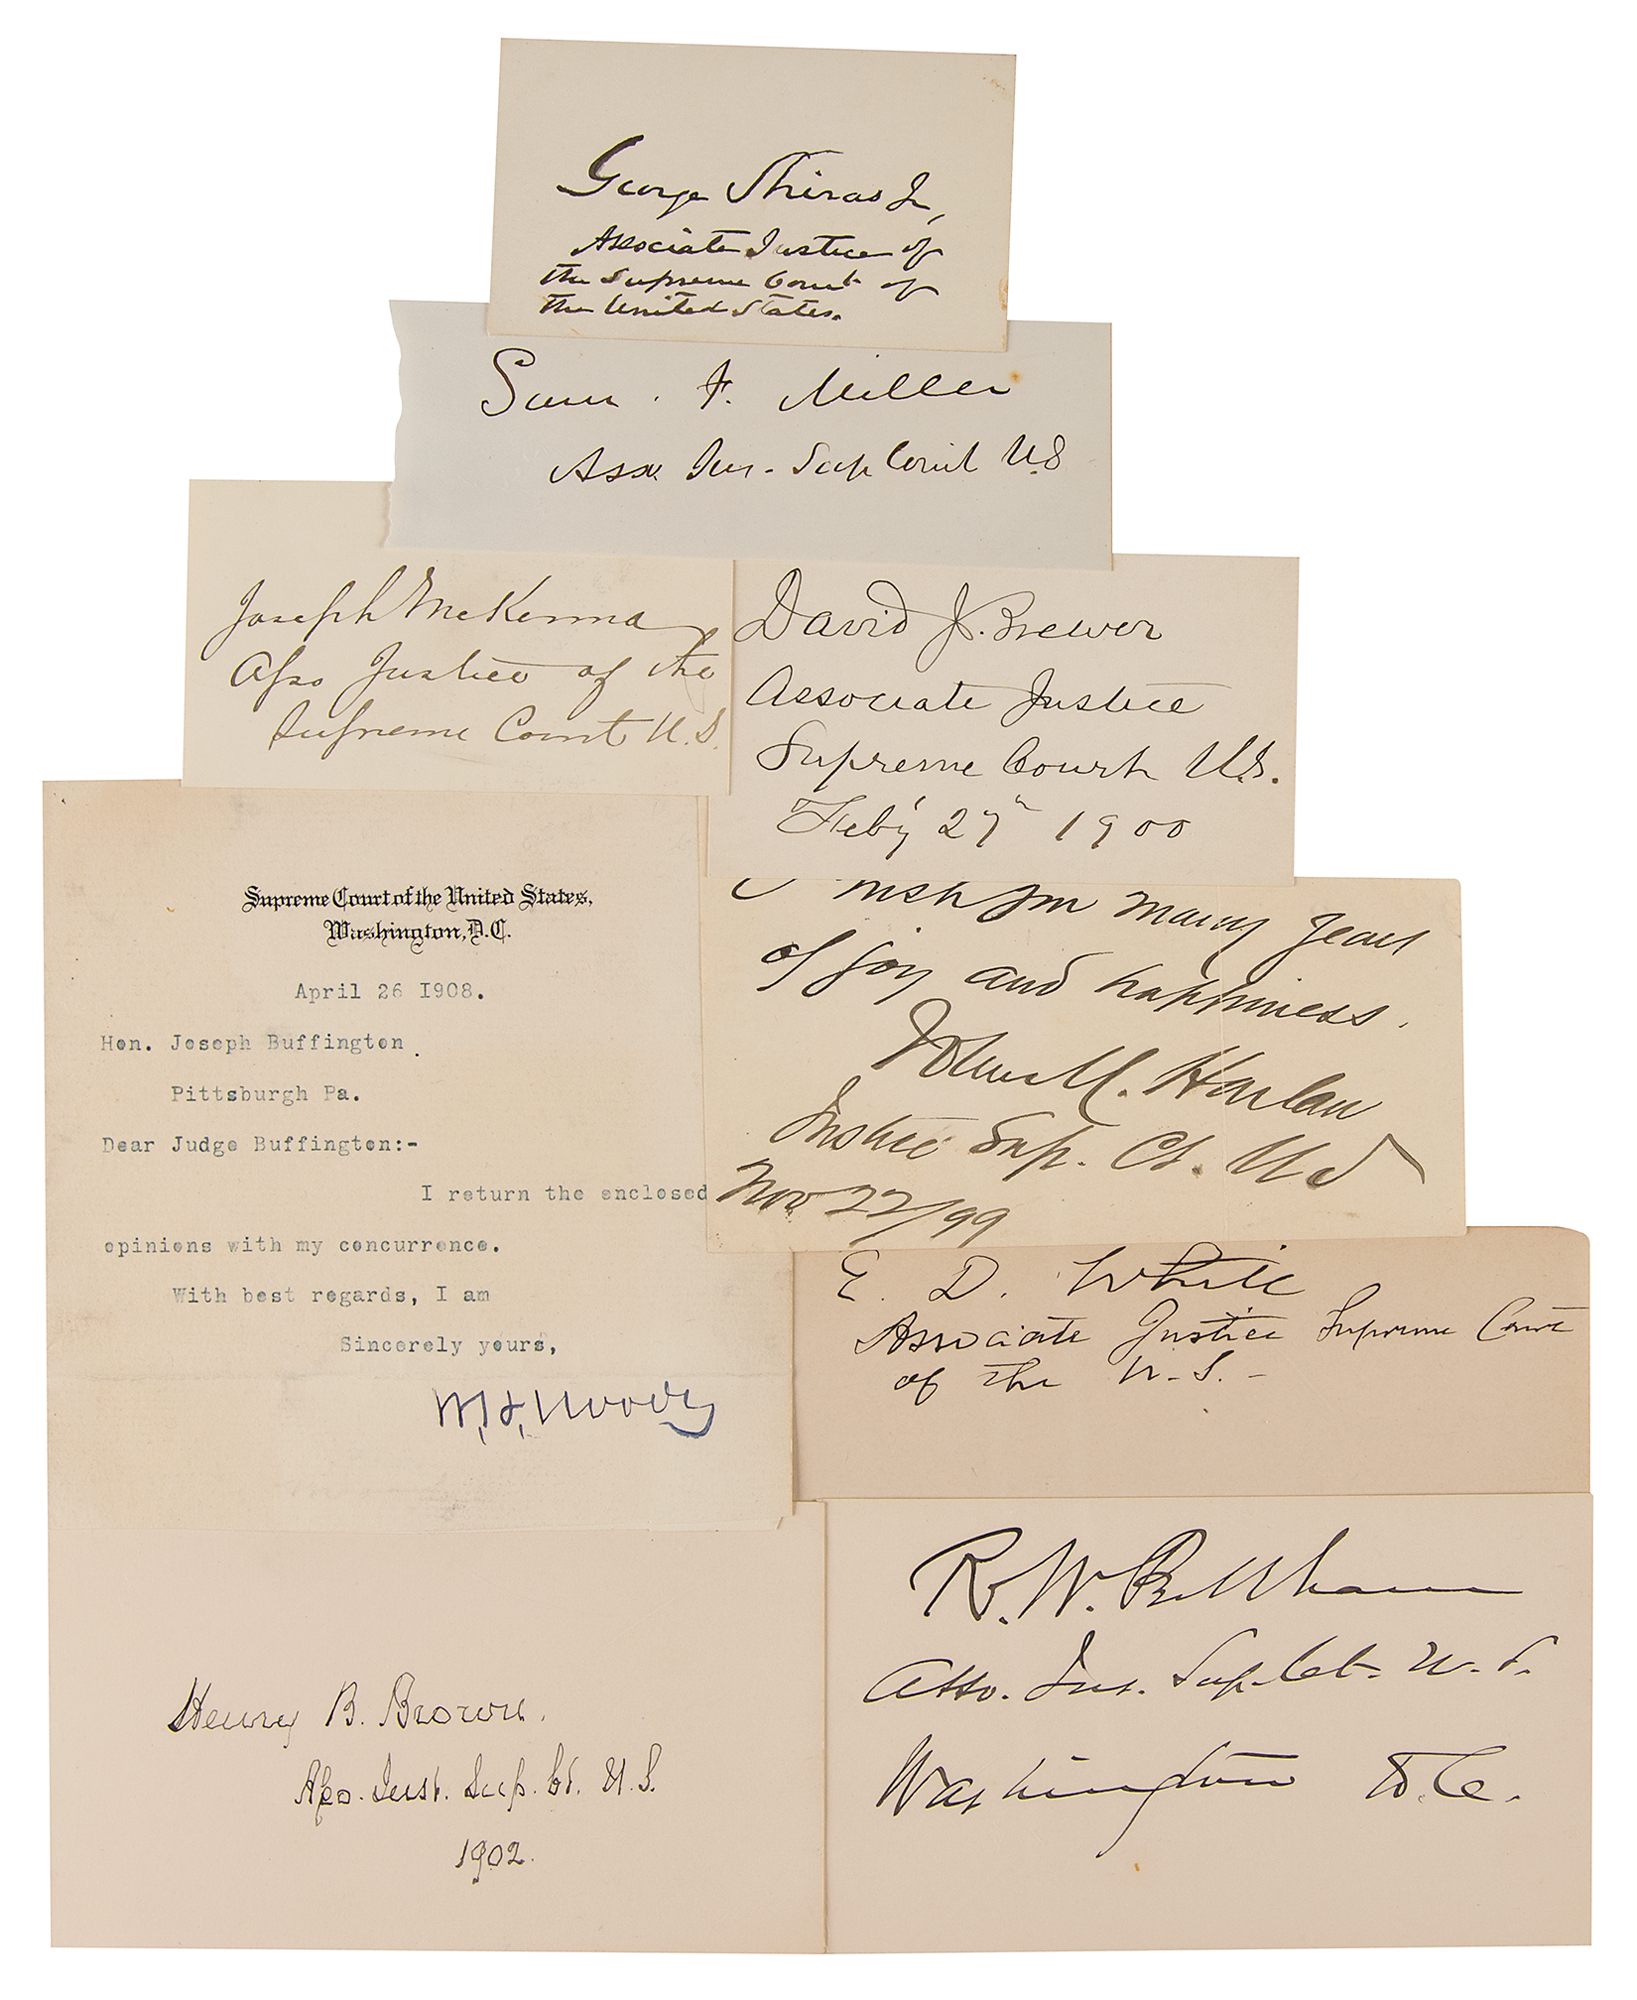 George Shiras Jr,
Associate Justice of
the Supreme Court of
the United States.
Sam. F. Miller
Asso. Jus. Sup Court U.S
Joseph McKenna
Asso Justice of the
Supreme Court U.S.
David J. Brewer
Associate Justice
Supreme Court U.S.
Feb'y 27th 1900
Supreme Court of the United States,
Washington, D.C.
April 26 1908.
Hon. Joseph Buffington.
Pittsburgh Pa.
Dear Judge Buffington:-
I return the enclosed
opinions with my concurrence.
With best regards, I am
Sincerely yours,
W. H. Moody
I wish you many years
of joy and happiness.
John M. Harlan
Justice Sup. Ct. U S
Nov 22/99
E. D. White
Associate Justice Supreme Court
of the U.S.-
Henry B. Brown.
Asso. Just. Sup. Ct. U.S.
1902.
R. W. Peckham
Asso. Jus. Sup. Ct. U.S.
Washington D.C.